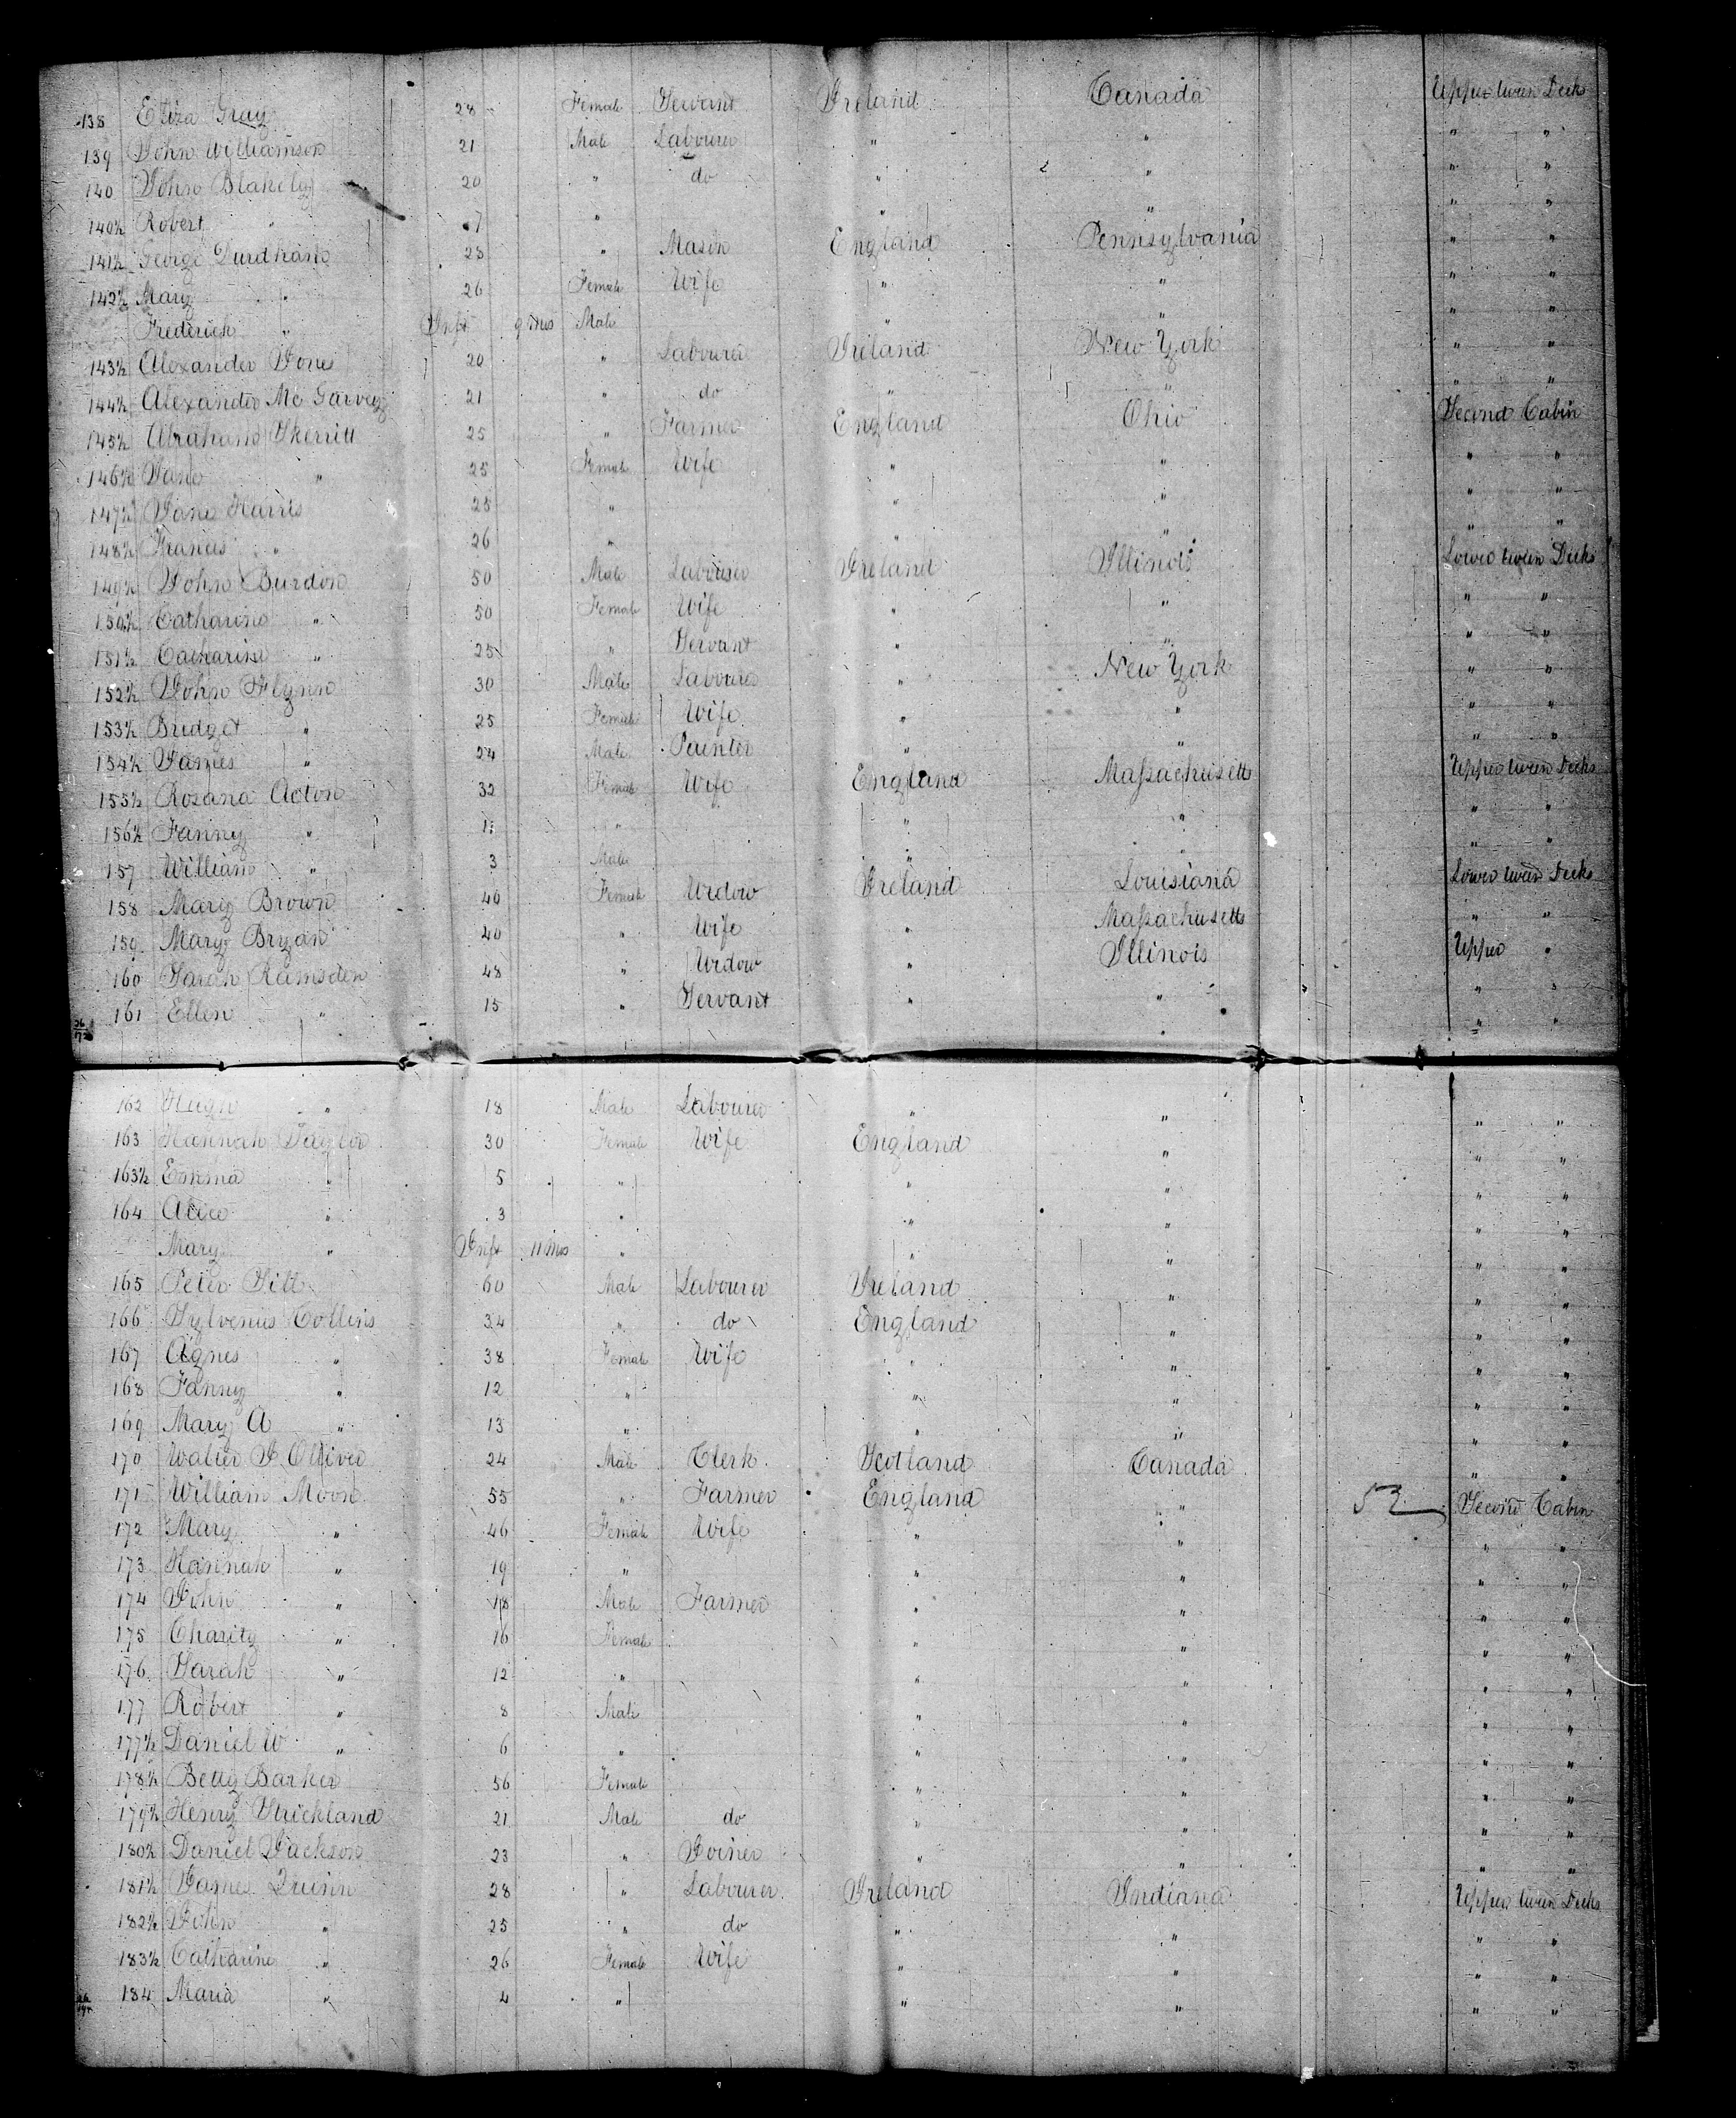 138 Eliza Gray 28 Female Servant Ireland Canada Upper twen Decks
139 John Williamson 21 Male Labourer " " " "
140 John Blakely 20 " do " " " "
140½ Robert " 7 " " " " "
141½ George Durdham 28 " Mason England Pennsylvania " "
142½ Mary " 26 Female Wife " " " "
Frederick " Inft 9 mos Male " " " "
143½ Alexander Jones 20 " Labourer Ireland New York " "
144½ Alexander Mc Garvey 21 " do " " " "
145½ Abraham Skerritt 25 " Farmer England Ohio Second Cabin
146½ Jane " 25 Female Wife " " " "
147½ Jane Harris 25 " " " " "
148½ Francis " 26 " " " " "
149½ John Burdon 50 Male Labourer Ireland Illinois Lower twen Decks
150½ Catharine " 50 Female Wife " " " "
151½ Catharine " 25 " Servant " " " "
152½ John Flynn 30 Male Labourer " New York " "
153½ Bridget " 25 Female Wife " " " "
154½ James " 24 Male Painter " " " "
155½ Rosana Acton 32 Female Wife England Massachusetts Upper twen Decks
156½ Fanny " 11 " " " " "
157 William " 3 Male " " " "
158 Mary Brown 40 Female Widow Ireland Louisiana Lower twen Decks
159 Mary Bryan 40 " Wife " Massachusetts " "
160 Sarah Ramsden 48 " Widow " Illinois Upper "
161 Ellen " 15 " Servant " " " "
162 Hugh " 18 Male Labourer " " " "
163 Hannah Taylor 30 Female Wife England " " "
163½ Emma " 5 " " " " "
164 Alice " 3 " " " " "
Mary " Inft 11 mos " " " " "
165 Peter Tilt 60 Male Labourer Ireland " " "
166 Sylvenus Collins 34 " do England " " "
167 Agnes " 38 Female Wife " " " "
168 Fanny " 12 " " " " "
169 Mary A " 13 " " " " "
170 Walter J Olliver 24 Male Clerk Scotland Canada " "
171 William Moon 55 " Farmer England " 52 Second Cabin
172 Mary " 46 Female Wife " " " "
173 Hannah " 19 " " " " "
174 John " 18 Male Farmer " " " "
175 Charity " 16 Female " " " "
176 Sarah " 12 " " " " "
177 Robert " 8 Male " " " "
177½ Daniel W " 6 " " " " "
178½ Betty Barker 56 Female " " " "
179½ Henry Strickland 21 Male do " " " "
180½ Daniel Jackson 23 " Joiner " " " "
181½ James Quinn 28 " Labourer Ireland Indiana Upper twen Decks
182½ John " 25 " do " " " "
183½ Catharine " 26 Female Wife " " " "
184 Maria " 4 " " " " "